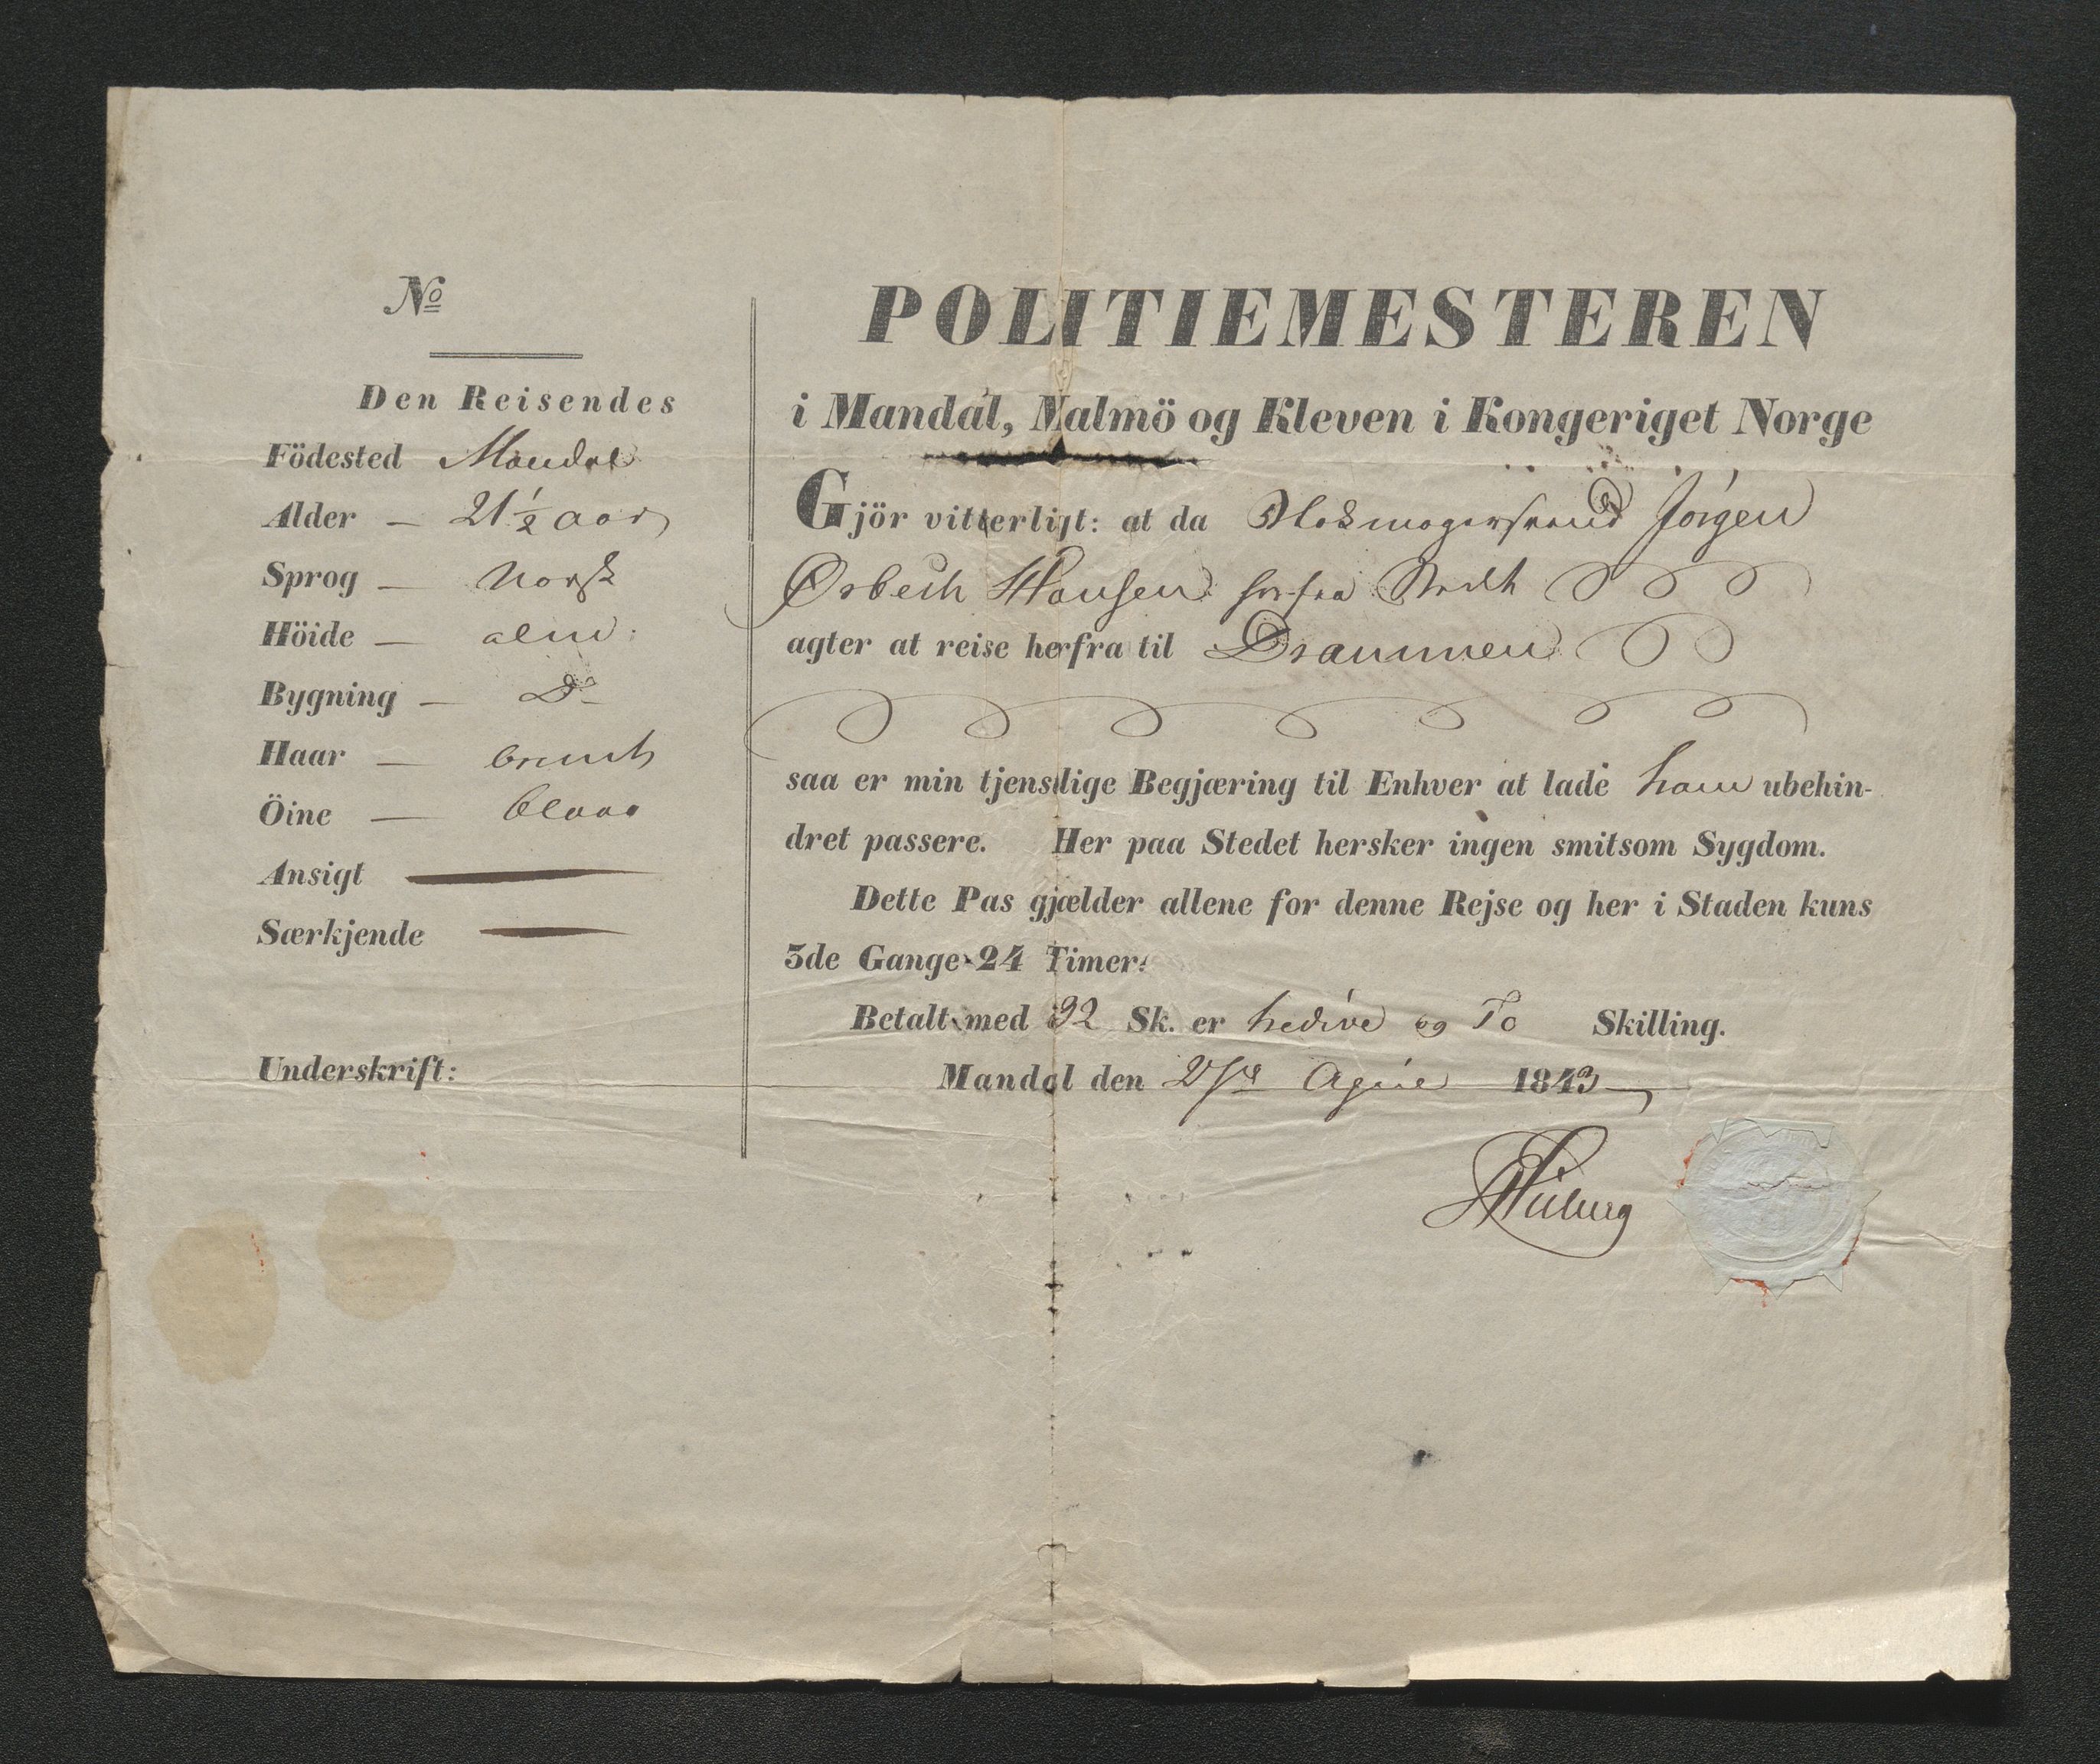 No
Den Reisendes
Födested Mandal
Alder – 21 1/2 aar
Sprog – Norsk
Höide – alm:
Bygning – Do
Haar – bruunt
Öine – blaae
Ansigt
Særkjende
Underskrift:
POLITIEMESTEREN
i Mandal, Malmö og Kleven i Kongeriget Norge
Gjör vitterligt: at da Jörgen
Hansen
agter at reise herfra til Drammen
saa er min tjenstlige Begjæring til Enhver at lade ham ubehin-
dret passere. Her paa Stedet hersker ingen smitsom Sygdom.
Dette Pas gjælder allene for denne Rejse og her i Staden kuns
3de Gange 24 Timer.
Betalt med 32 Sk. er tredive og To Skilling.
Mandal den 27de 1843